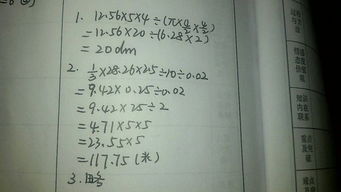 1. 12.56×5×4÷(π×4/2×4/2)
=12.56×20÷(6.28×2)
=20dm
2. 1/3×28.26×2.5÷10÷0.02
=9.42×0.25÷0.02
=9.42×25÷2
=4.71×5×5
=23.55×5
=117.75(米)
3.略